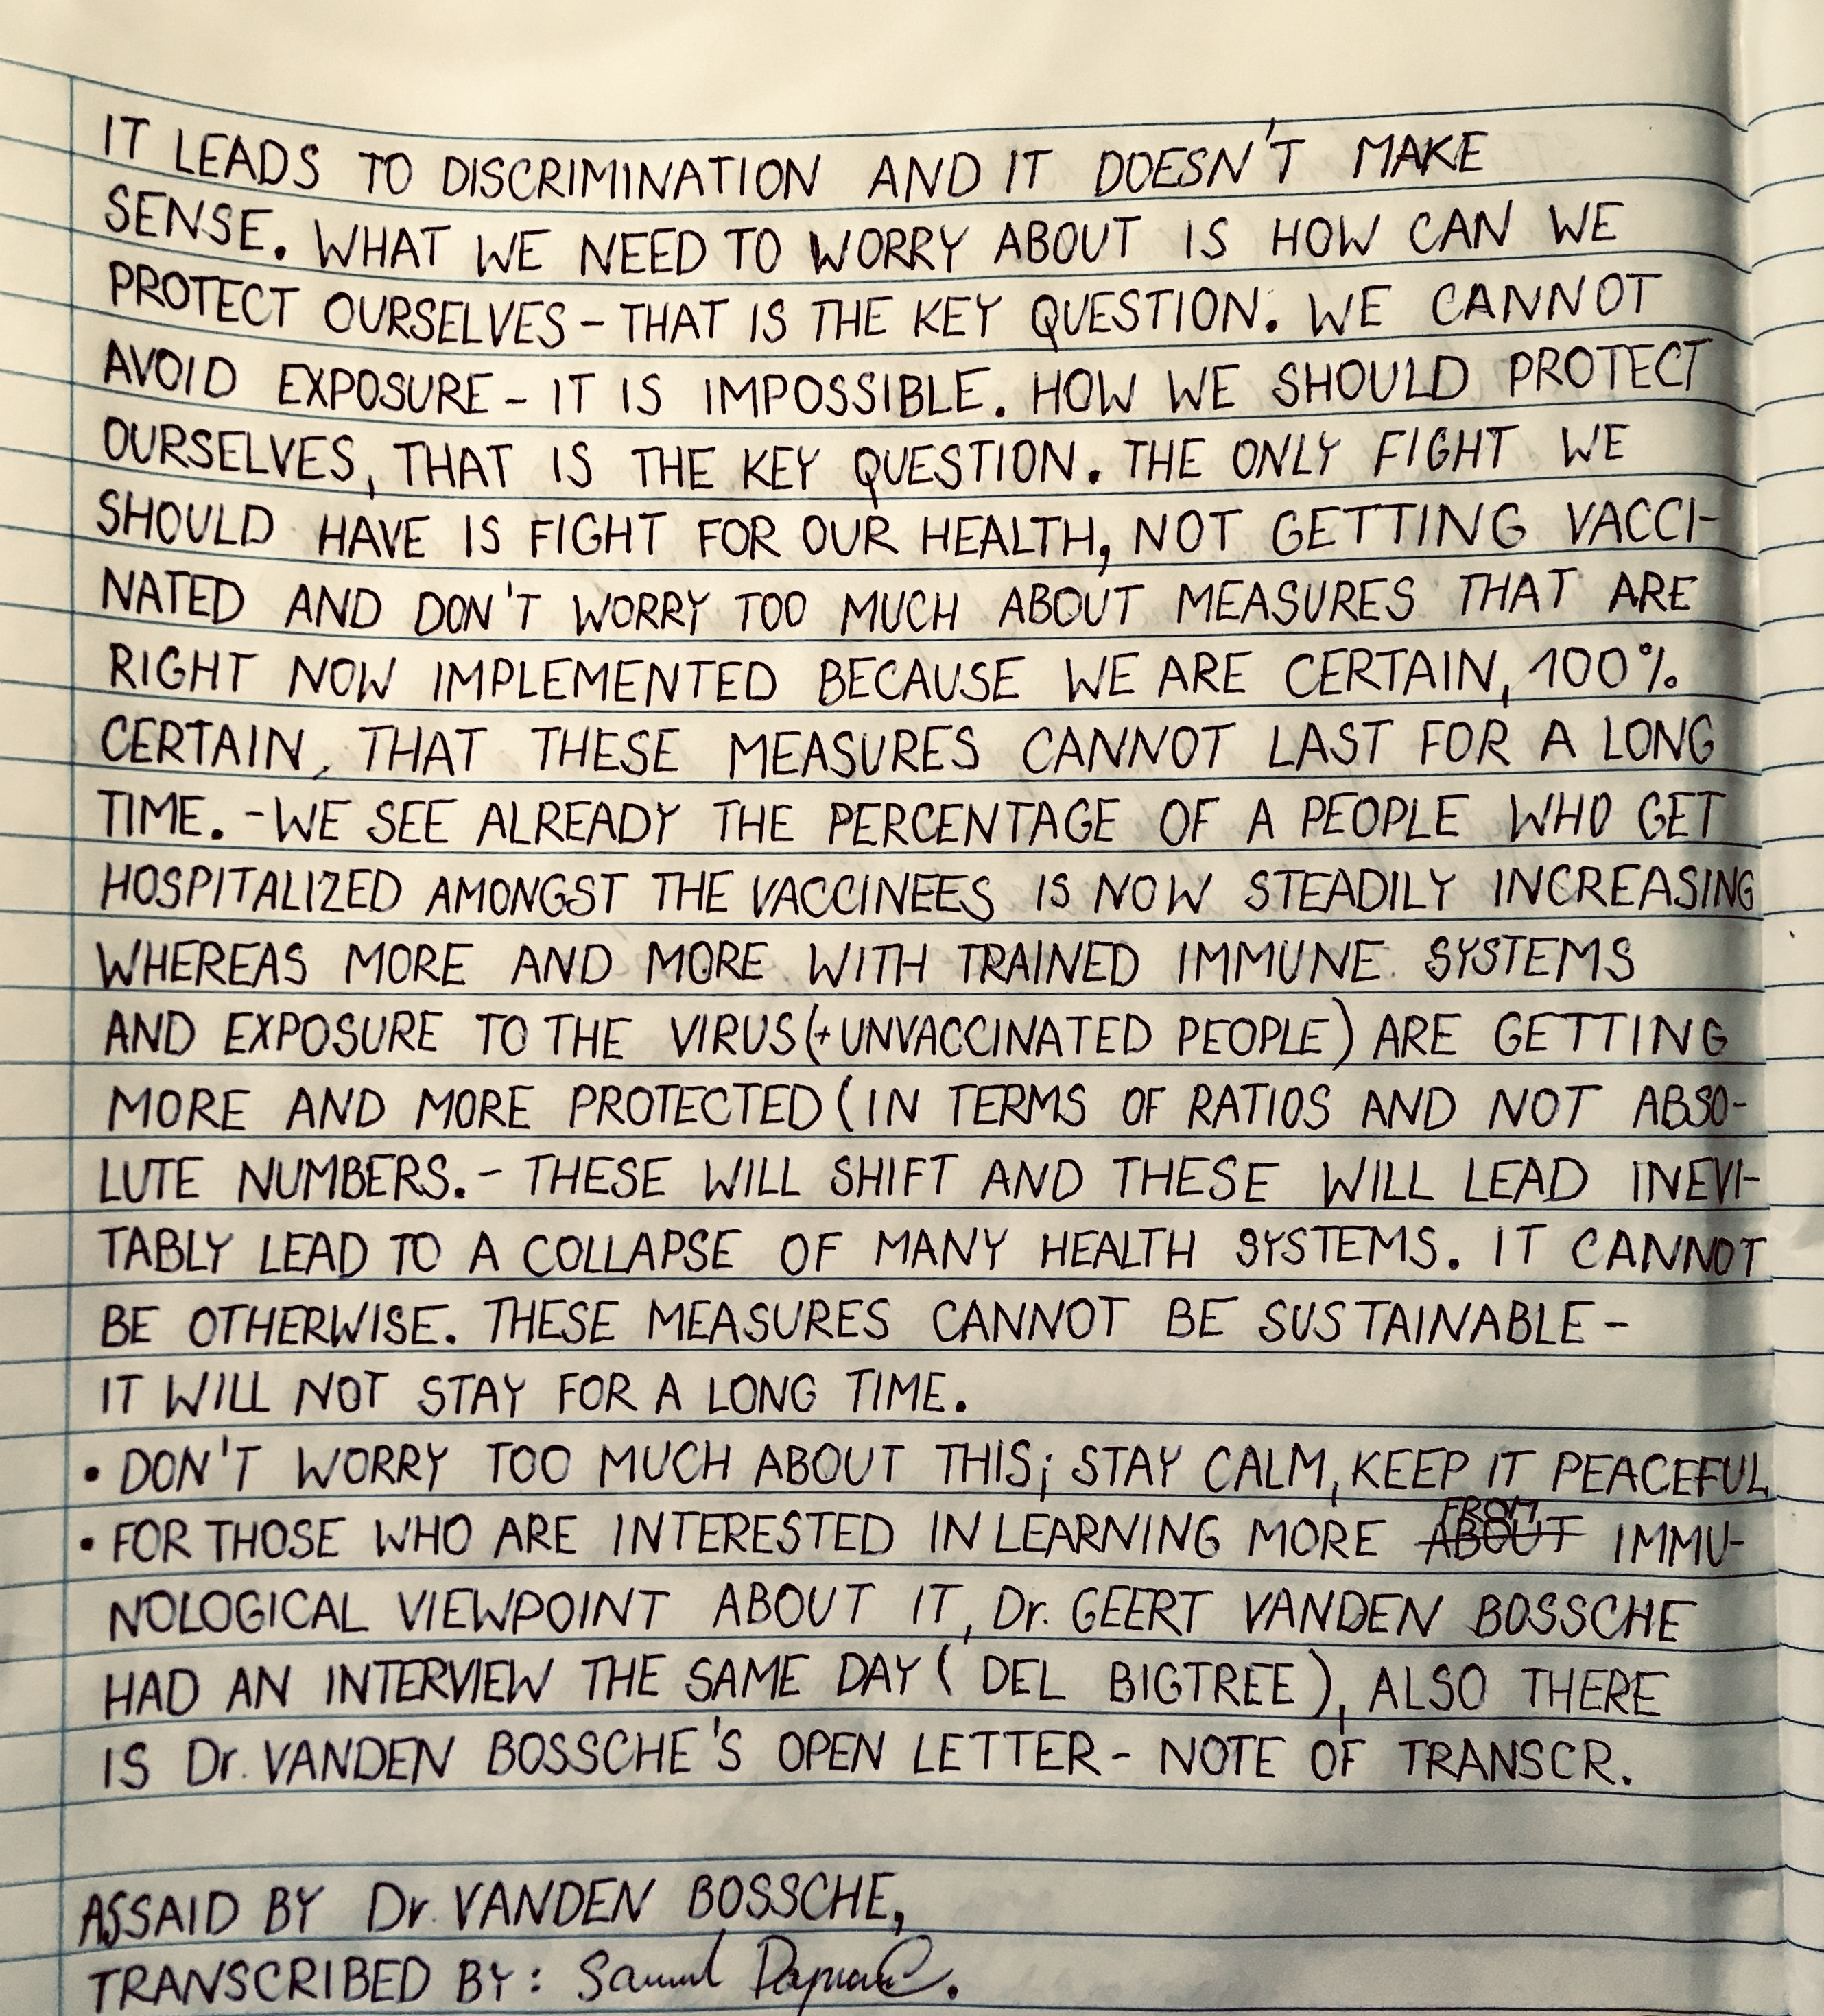 IT LEADS TO DISCRIMINATION AND IT DOESN'T MAKE
SENSE. WHAT WE NEED TO WORRY ABOUT IS HOW CAN WE
PROTECT OURSELVES - THAT IS THE KEY QUESTION. WE CANNOT
AVOID EXPOSURE - IT IS IMPOSSIBLE. HOW WE SHOULD PROTECT
OURSELVES, THAT IS THE KEY QUESTION. THE ONLY FIGHT WE
SHOULD HAVE IS FIGHT FOR OUR HEALTH, NOT GETTING VACCI-
NATED AND DON'T WORRY TOO MUCH ABOUT MEASURES THAT ARE
RIGHT NOW IMPLEMENTED BECAUSE WE ARE CERTAIN, 100%
CERTAIN, THAT THESE MEASURES CANNOT LAST FOR A LONG
TIME. - WE SEE ALREADY THE PERCENTAGE OF A PEOPLE WHO GET
HOSPITALIZED AMONGST THE VACCINEES IS NOW STEADILY INCREASING
WHEREAS MORE AND MORE WITH TRAINED IMMUNE SYSTEMS
AND EXPOSURE TO THE VIRUS (+ UNVACCINATED PEOPLE) ARE GETTING
MORE AND MORE PROTECTED (IN TERMS OF RATIOS AND NOT ABSO-
LUTE NUMBERS. - THESE WILL SHIFT AND THESE WILL LEAD INEVI-
TABLY LEAD TO A COLLAPSE OF MANY HEALTH SYSTEMS. IT CANNOT
BE OTHERWISE. THESE MEASURES CANNOT BE SUSTAINABLE -
IT WILL NOT STAY FOR A LONG TIME.
• DON'T WORRY TOO MUCH ABOUT THIS; STAY CALM, KEEP IT PEACEFUL
• FOR THOSE WHO ARE INTERESTED IN LEARNING MORE FROM ABOUT IMMU-
NOLOGICAL VIEWPOINT ABOUT IT, Dr. GEERT VANDEN BOSSCHE
HAD AN INTERVIEW THE SAME DAY (DEL BIGTREE), ALSO THERE
IS Dr. VANDEN BOSSCHE'S OPEN LETTER - NOTE OF TRANSCR.
AS SAID BY Dr. VANDEN BOSSCHE,
TRANSCRIBED BY: